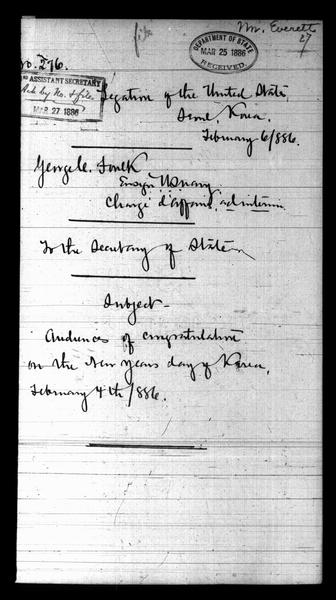 file
Mr. Everett
27
DEPARTMENT OF STATE
MAR 25 1886
RECEIVED
No. 276.
ASSISTANT SECRETARY
Ack by No. & file
MAR 27 1886
Legation of the United States
Seoul, Korea,
February 6/886.
George C. Foulk
Ensign U.S. Navy
Chargé d'affaires, ad interim
To the Secretary of State
Subject-
Audiences of congratulation
on the New Years day of Korea,
February 4th/886.